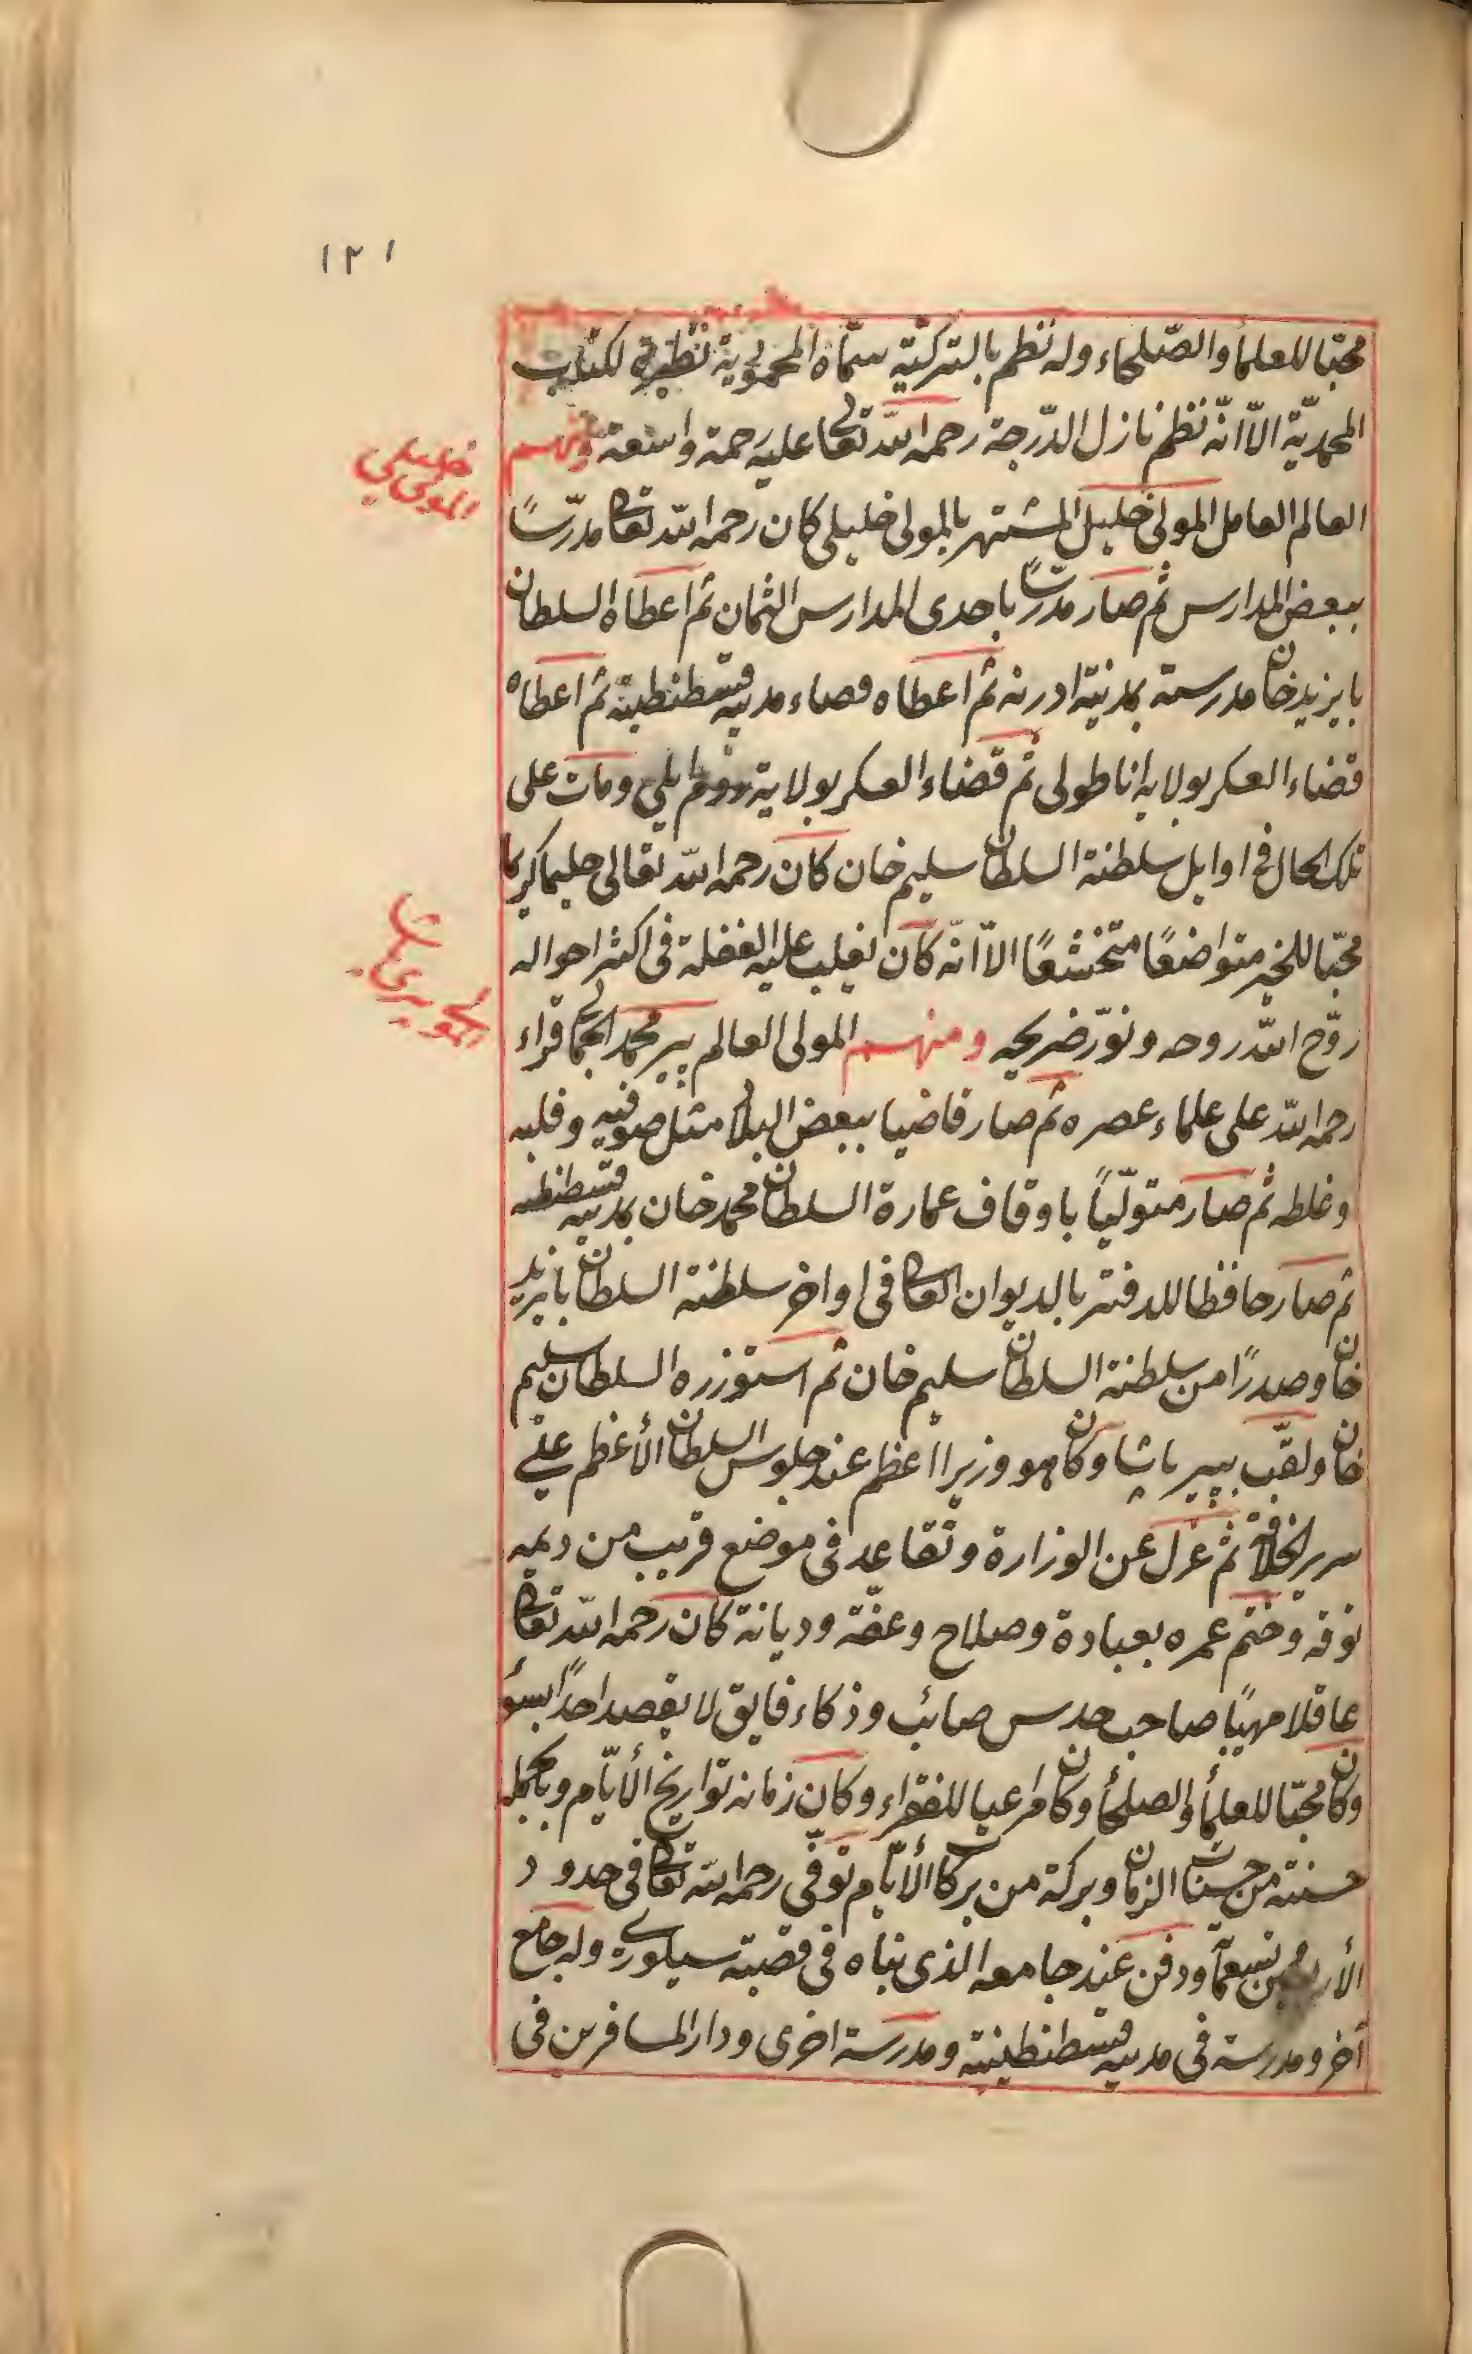 ١٢١
محبّا للعلماء والصّلحاء وله نظم بالتركيّة سمّاه المحموديّة نظيرة لكتاب
المحمديّة الاّ انّه نظم نازل الدّرجة رحمه اللّه تعالى عليه رحمة واسعة ومنهم
العالم العامل المولى خليل المشتهر بالمولى خليلى كان رحمه اللّه تعالى مدرّسًا
ببعض المدارس ثم صار مدرّسًا باحدى المدارس الثمان ثم اعطاه السلطان
بايزيد خان مدرسة بمدينة ادرنه ثم اعطاه قضاء مدينة قسطنطينة ثم اعطاه
قضاء العسكر بولاية اناطولى ثم قضاء العسكر بولاية روم ايلي ومات على
تلك الحال فى اوايل سلطنة السلطان سليم خان كان رحمه اللّه تعالى حليما كريما
محبّا للخير متواضعًا متخشعًا الاّ انّه كان يغلب عليه الغفلة فى اكثر احواله
روّح اللّه روحه ونوّر ضريحه ومنهم المولى العالم پير محمد الجمالى قراء
رحمه اللّه على علماء عصره ثم صار قاضيا ببعض البلاد مثل صوفيه وفلبه
وغلطه ثم صار متولّيًا باوقاف عمارة السلطان محمد خان بمدينة قسطنطنه
ثم صار حافظا للدفتر بالديوان العالى فى اواخر سلطنة السلطان بايزيد
خان وصدرًا من سلطنة السلطان سليم خان ثم استوزره السلطان سليم
خان ولقّب بپير پاشا وكان هو وزيرا اعظم عند جلوس السلطان الأعظم على
سرير الخلافة ثم عزل عن الوزارة وتقاعد فى موضع قريب من ديمه
توقه وختم عمره بعبادة وصلاح وعفّة وديانة كان رحمه اللّه تعالى
عاقلا مهيبًا صاحب حدس صائب وذكاء فايق لا يقصد احدًا بسؤ
وكان محبّا للعلماء والصلحاء وكان مراعيا للفقراء وكان زمانه تواريخ الأيّام وبالجملة
حسنة من حسنات الزمان وبركة من بركات الأيّام توفّى رحمه اللّه تعالى فى حدود
الأربعين تسعمائة ودفن عند جامعه الذى بناه فى قصبة سيلورى وله جامع
أخر ومدرسة فى مدينة قسطنطينية ومدرسة اخرى ودار المسافرين فى
خليلى
المولى
المولى پيرى